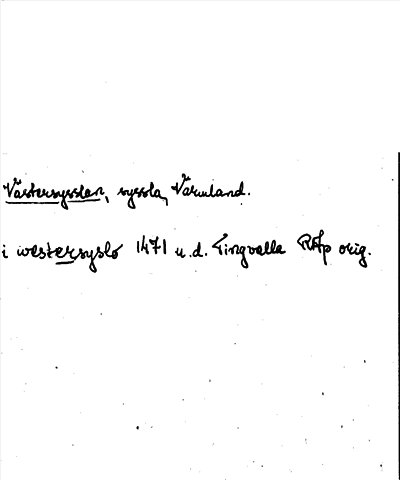 Västersysslan, syssla, Värmland.
i westersyslo 1471 u.d. Tingvalla RAp orig.